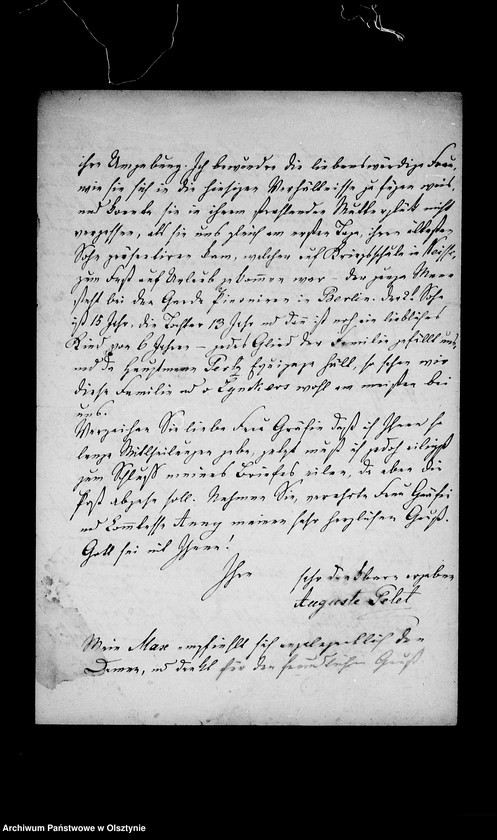 ihre Umgebung. Ich bewundre die liebenswürdige Frau,
wie sie sich in die hiesigen Verhältnisse zu fügen weis,
und konnte sie in ihrem strahlenden Mutterglück nicht
vergessen, als sie uns gleich am ersten Tage, ihren ältesten
Sohn präsentiren kam, welcher auf Kriegsschule in Neisse,
zum Fest auf Urlaub gekommen war – der junge Mann
steht bei den Garde Pionieren in Berlin. der 2t Sohn
ist 15 Jahr, die Tochter 13 Jahr und dann ist noch ein liebliches
Kind von 6 Jahren – jedes Glied der Familie gefällt uns,
und da Hauptmann Equipage hält, so sehen wir
diese Familie wohl am meisten bei
uns.
Verzeihen Sie liebe Frau Gräfin daß ich Ihnen so
lange Mittheilungen gebe, jetzt muß ich jedoch eiligst
zum Schluß meines Briefes eilen, da eben die
Post abgehn soll. Nehmen Sie, verehrte Frau Gräfin
und Komtesse Anny meinen sehr herzlichen Gruß.
Gott sei mit Ihnen!
Ihre
sehr dankbare ergebene
Auguste Pelet
Mein Max empfiehlt sich angelegentlich den
Damen, und dankt für den freundlichen Gruß
Archiwum Państwowe w Olsztynie